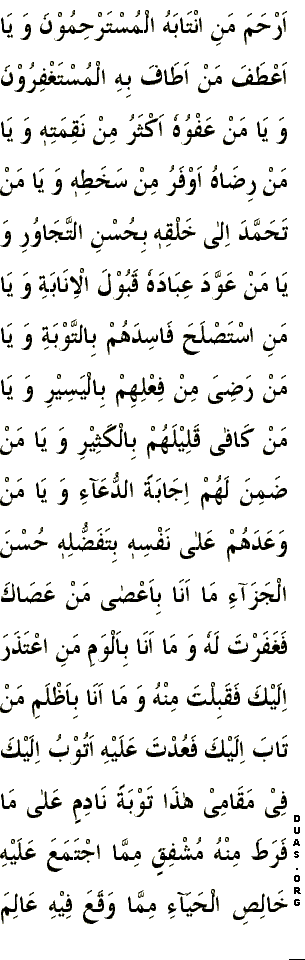 اَرْحَمَ مَنِ انْتَابَهُ الْمُسْتَرْحِمُوْنَ وَ يَا
اَعْطَفَ مَنْ اَطَافَ بِهِ الْمُسْتَغْفِرُوْنَ
وَ يَا مَنْ عَفْوُهٗ اَكْثَرُ مِنْ نَقِمَتِهٖ وَ يَا
مَنْ رِضَاهُ اَوْفَرُ مِنْ سَخَطِهٖ وَ يَا مَنْ
تَحَمَّدَ اِلٰى خَلْقِهٖ بِحُسْنِ التَّجَاوُرِ وَ
يَا مَنْ عَوَّدَ عِبَادَهٗ قَبُوْلَ الْاِنَابَةِ وَ يَا
مَنِ اسْتَصْلَحَ فَاسِدَهُمْ بِالتَّوْبَةِ وَ يَا
مَنْ رَضِىَ مِنْ فِعْلِهِمْ بِالْيَسِيْرِ وَ يَا
مَنْ كَافٰى قَلِيْلَهُمْ بِالْكَثِيْرِ وَ يَا مَنْ
ضَمِنَ لَهُمْ اِجَابَةَ الدُّعَآءِ وَ يَا مَنْ
وَعَدَهُمْ عَلٰى نَفْسِهٖ بِتَفَضُّلِهٖ حُسْنَ
الْجَزَآءِ مَا اَنَا بِاَعْصٰى مَنْ عَصَاكَ
فَغَفَرْتَ لَهٗ وَ مَا اَنَا بِاَلْوَمِ مَنِ اعْتَذَرَ
اِلَيْكَ فَقَبِلْتَ مِنْهُ وَ مَا اَنَا بِاَظْلَمِ مَنْ
تَابَ اِلَيْكَ فَعُدْتَ عَلَيْهِ اَتُوْبُ اِلَيْكَ
فِىْ مَقَامِىْ هٰذَا تَوْبَةَ نَادِمٍ عَلٰى مَا
فَرَطَ مِنْهُ مُشْفِقٍ مِمَّا اجْتَمَعَ عَلَيْهِ
خَالِصِ الْحَيَآءِ مِمَّا وَقَعَ فِيْهِ عَالِمٍ
DUAS.ORG